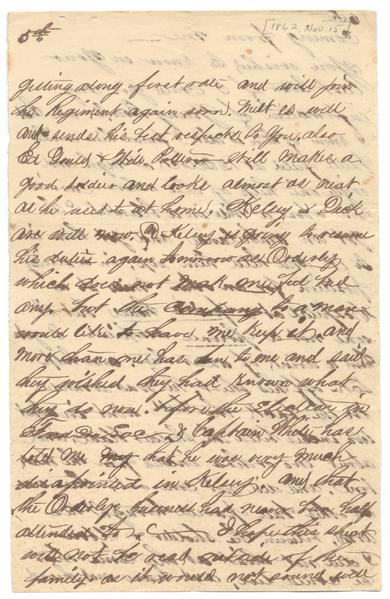 5th [1862, Nov. 15]
getting along first rate and will join
the Regiment again soon. Milt is well
and sends his best respects to you, also
Ed Still makes a
good soldier and looks almost as neat
as he used to at home. Kelsey & Dick
are well now. Kelsey is going to resume
his duties again tomorrow as Orderly
which does not make me feel bad
any. but the company to a man
would like to have me keep it and
more than one has been to me and said
they wished they had known what
they do now. before the Election in
Fon Du Lac & Captain has
told me my that he was very much
disappointed in Kelsey and that
the Orderlys business had never been half
attended to I hope this sheet
will not be read outside of the
family as it would not sound well